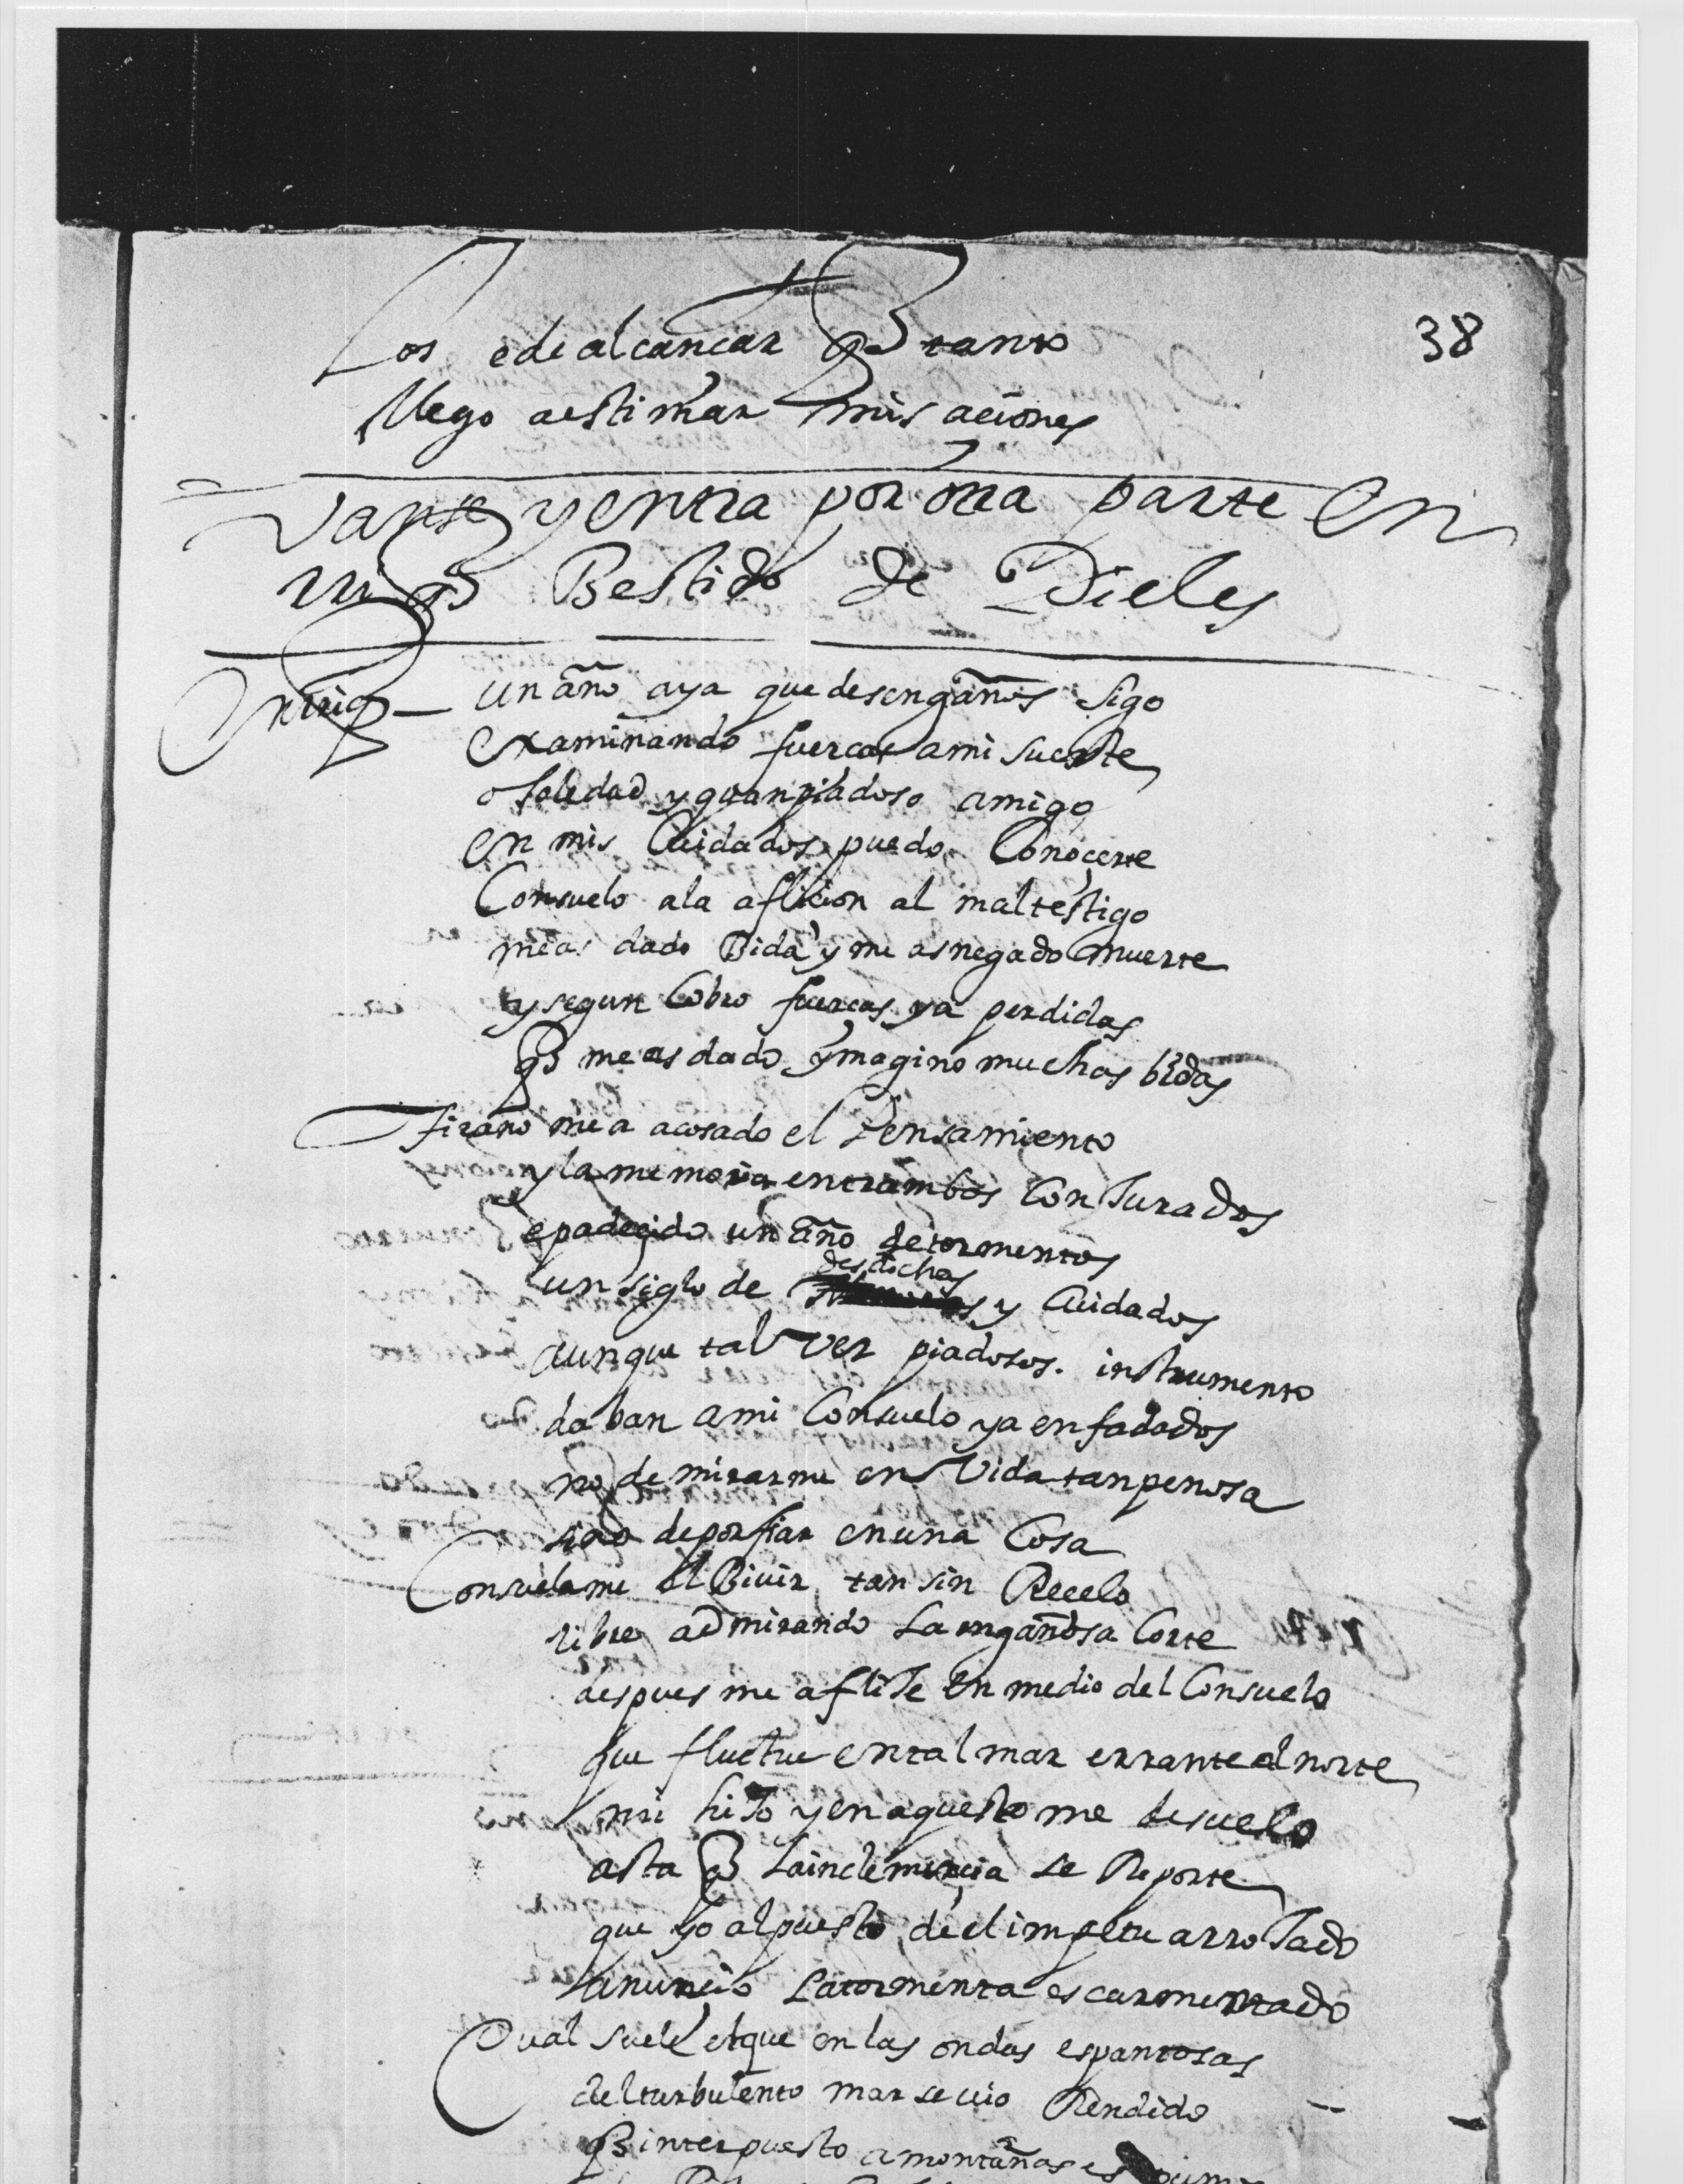 38
Los e de alcançar q tanto
llego a estimar mis aciones
Vanse y entra por otra parte En
rriq Bestido de Pieles
Enrriq — un año aya que desengaños sigo
examinando fuerças ami suerte
o soledad y quan piadoso amigo
en mis Cuidados puedo Conocerte
Consuelo ala aflicion al mal testigo
me as dado Bida y me as negado muerte
y segun Cobro fuerças ya perdidas
q me as dado ymagino muchas bidas
tirano me a acosado el Pensamiento
y la memoria entrambos Conjurados
e padeçido un año de tormentos
un siglo de desdichas y Cuidados
aunque tal vez piadosos instrumento
daban ami Consuelo ya enfadados
no de mirarme en Vida tan penosa
sino de porfiar en una Cosa
Consuelame el Bivir tan sin Recelo
libre admirando La engañosa Corte
despues me aflije En medio del Consuelo
que fluctue en tal mar errante al norte
mi hijo y en aquesto me desuelo
asta q La inclemencia se Reporte
que yo al puesto de el impetu arrojado
anunçio La tormenta escarmentado
Qual suele el que en las ondas espantosas
del turbulento mar se vio Rendido
q interpuesto a montañas